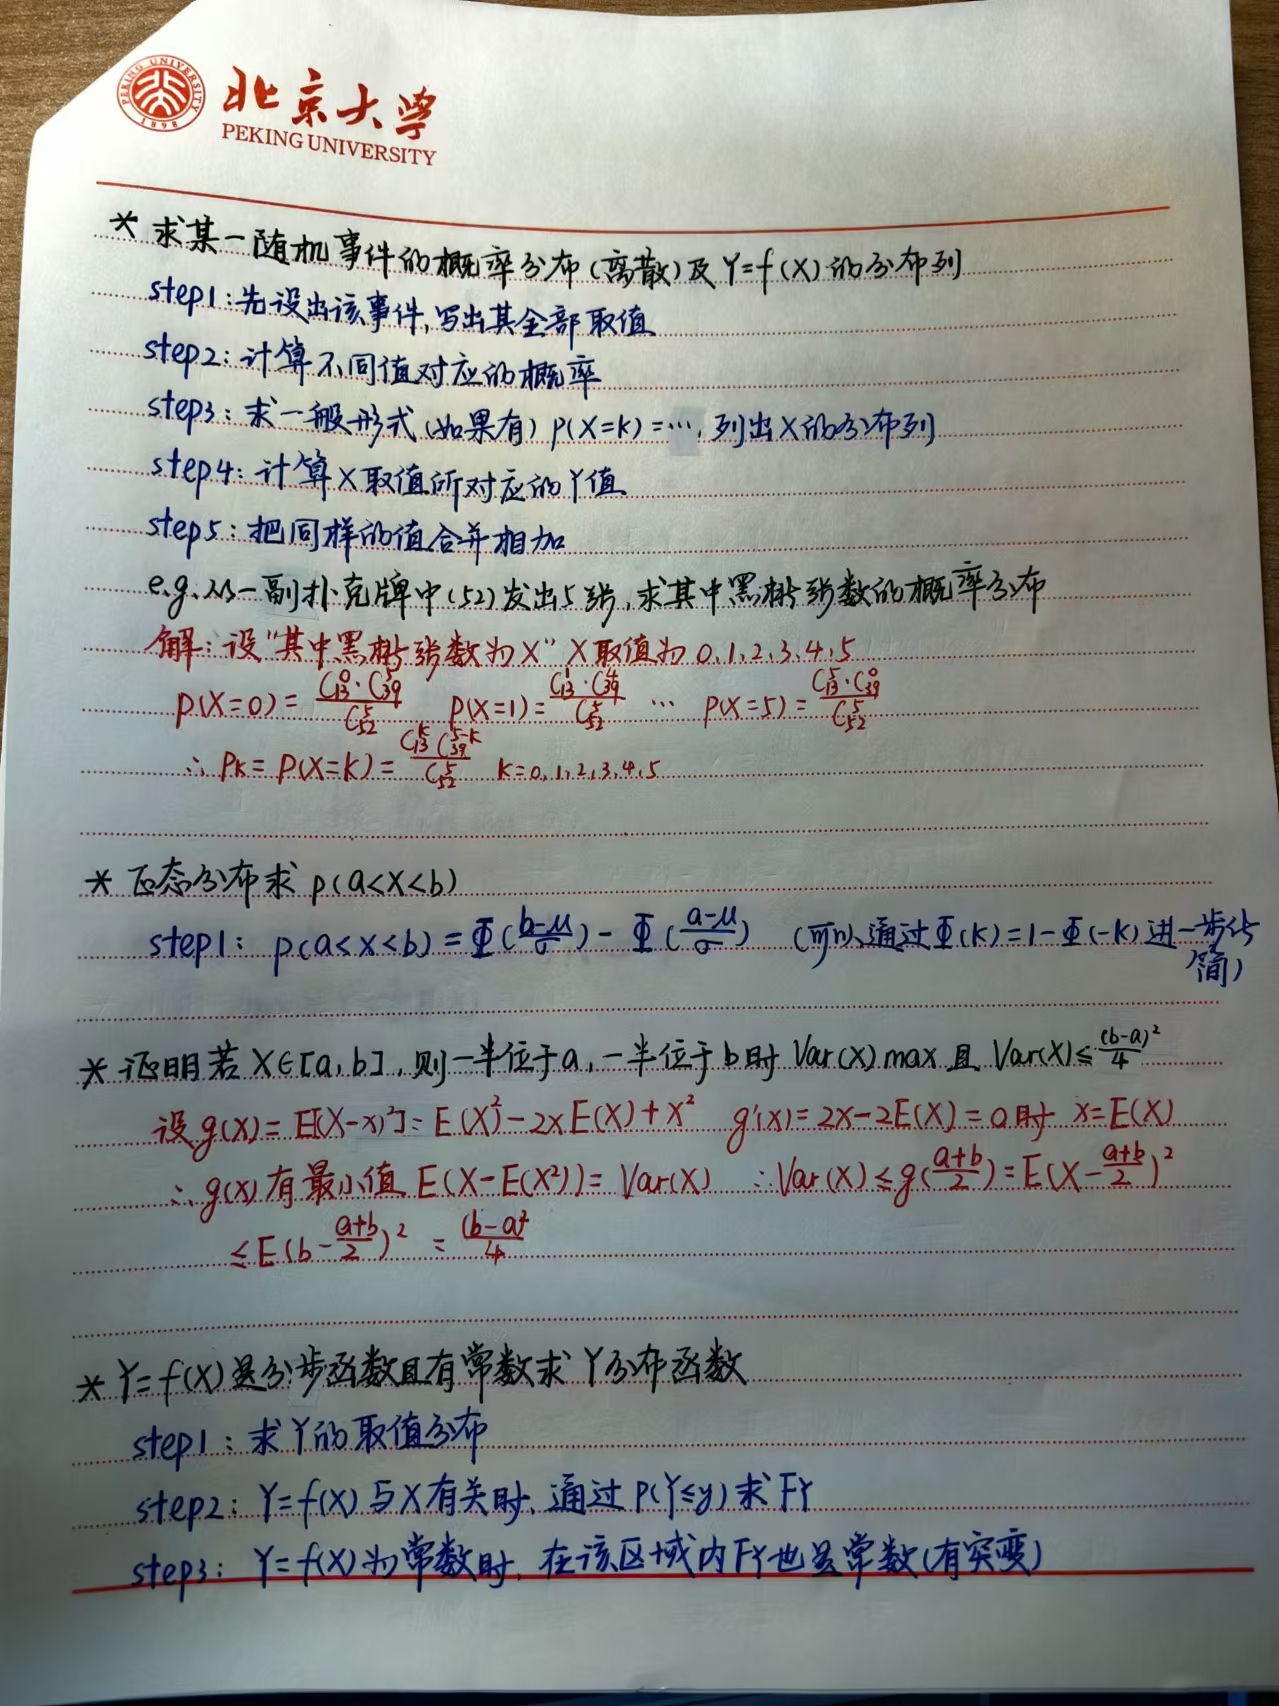 PEKING UNIVERSITY
1898
北京大学
PEKING UNIVERSITY
* 求某一随机事件的概率分布(离散)及 Y=f(X) 的分布列
step1: 先设出该事件, 写出其全部取值
step2: 计算不同值对应的概率
step3: 求一般形式 (如果有) P(X=k) = …, 列出X的分布列
step4: 计算X取值所对应的Y值
step5: 把同样的值合并相加
e.g. 从一副扑克牌中(52)发出5张, 求其中黑桃张数的概率分布
解: 设"其中黑桃张数为X" X取值为 0,1,2,3,4,5
P(X=0) = C⁰₁₃·C⁵₃₉/C⁵₅₂ P(X=1) = C¹₁₃·C⁴₃₉/C⁵₅₂ … P(X=5) = C⁵₁₃·C⁰₃₉/C⁵₅₂
∴ Pk = P(X=k) = Cᵏ₁₃ C⁵⁻ᵏ₃₉/C⁵₅₂ k=0,1,2,3,4,5
* 正态分布求 P(a<X<b)
step1: P(a<x<b) = Φ((b-μ)/σ) - Φ((a-μ)/σ) (可以通过Φ(k)=1-Φ(-k)进一步化
简)
* 证明若 X∈[a,b], 则一半位于a, 一半位于b时 Var(X) max 且 Var(X)≤(b-a)²/4
设g(x) = E[(X-x)²] = E(X²)-2xE(X)+x² g'(x)=2x-2E(X)=0时 x=E(X)
∴ g(x)有最小值 E(X-E(X²)) = Var(X) ∴ Var(X) ≤ g((a+b)/2) = E(X-(a+b)/2)²
≤ E(b-(a+b)/2)² = (b-a)²/4
* Y=f(X)是分步函数且有常数求 Y分布函数
step1: 求Y的取值分布
step2: Y=f(X) 与X有关时, 通过 P(Y≤y) 求FY
step3: Y=f(X)为常数时, 在该区域内FY也是常数(有突变)